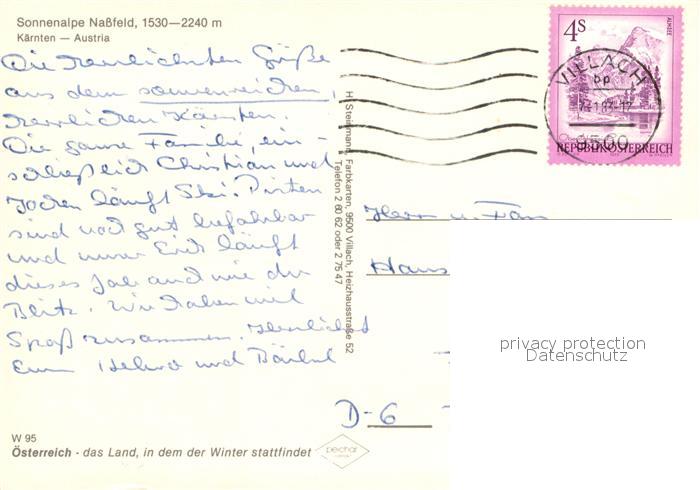 Sonnenalpe Naßfeld, 1530—2240 m
Kärnten — Austria
Die herzlichsten Grüße
aus dem sonnenreichen,
herrlichen Kärnten.
Die ganze Familie, ein-
schließlich Christian und
Jochen läuft Ski. Pisten
sind noch gut befahrbar
und unser läuft
dieses Jahr auch wie der
Blitz. Wir haben viel
Spaß zusammen. Herzlichst
Eure und Bärbel
W 95
Österreich - das Land, in dem der Winter stattfindet
H. Steinmann, Farbkarten, 9500 Villach, Heizhausstraße 52
Telefon 2 60 62 oder 2 75 47
4S
ALMSEE
VILLACH
9500
REPUBLIK ÖSTERREICH
Herrn u. Frau
Hans
D-6
privacy protection
Datenschutz